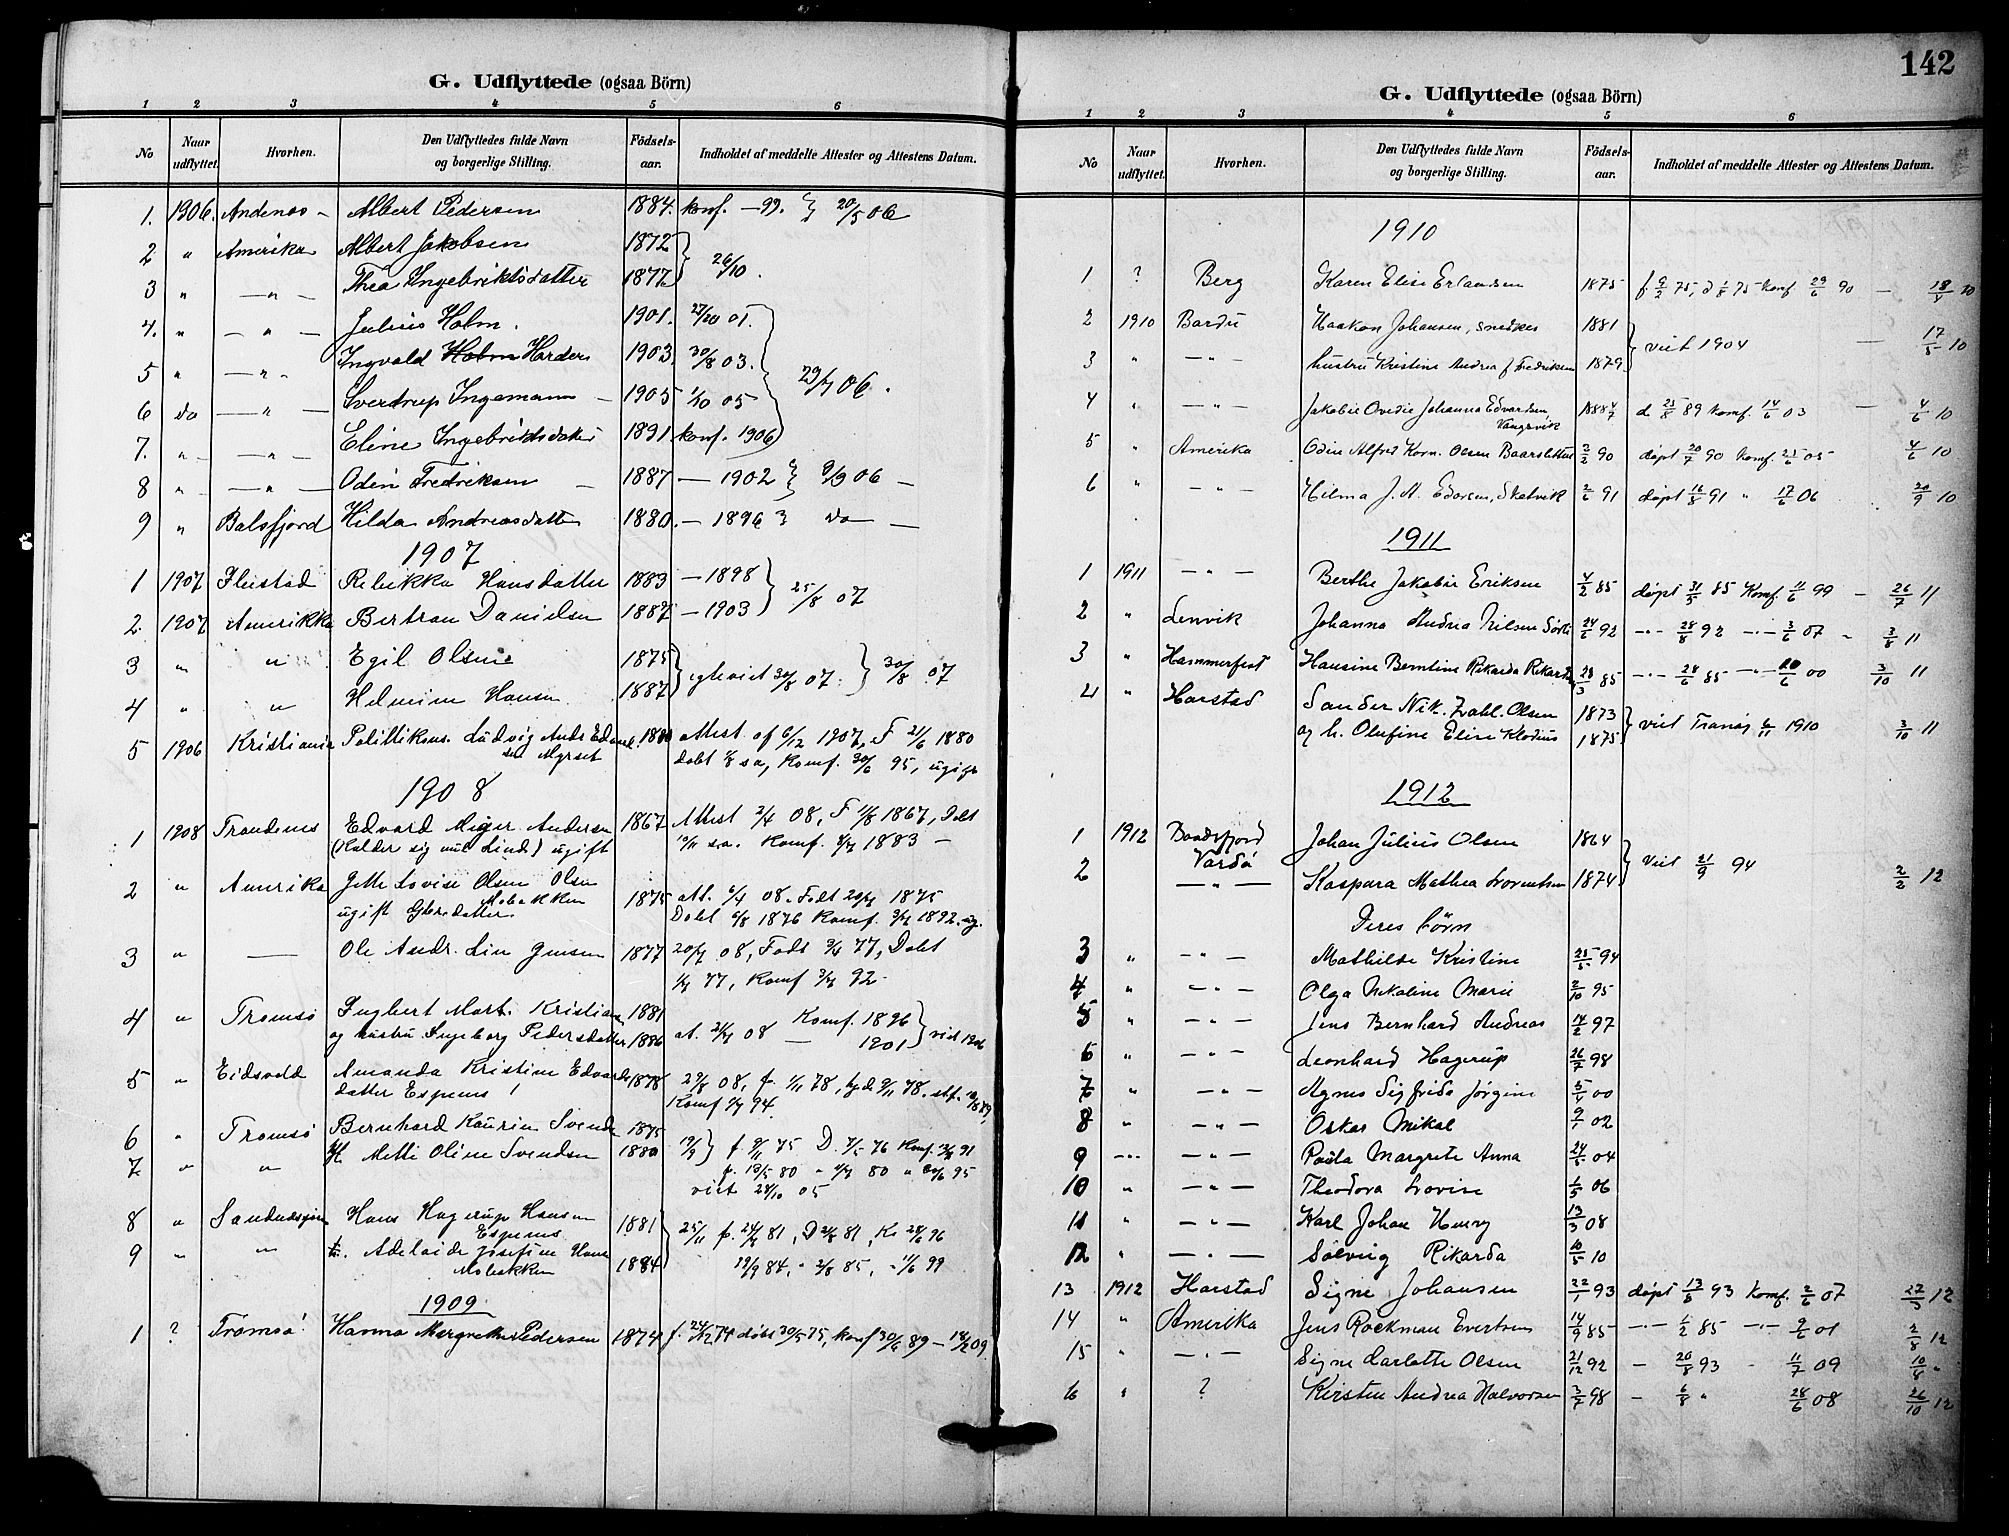 G. Udflyttede (ogsaa Börn)
1 2 3 4 5 6
No Naar udflyttet. Hvorhen. Den Udflyttedes fulde Navn og borgerlige Stilling. Födsels-aar. Indholdet af meddelte Attester og Attestens Datum.
1. 1906. Andenes - Albert Pedersen 1884. konf. - 99. } 20/5 06
2 " Amerika Albert Jakobsen 1872
3 " — " — Thea Ingebriktsdatter 1877 } 26/10.
4. " — " — Julius Holm. 1901. 01.
5 " — " - Ingvald Holm Harders 1903. 30/8 03.
6 do — " — Sverdrup Ingemann - 1905 1/10 05 29/7 06.
7. " — " — Eline Ingebriktsdatter 1891 konf. 1906
8 " — " — Odin Fredriksen - 1887 - 1902 } 9/9 06 -
9 " Balsfjord Hilda Andreasdatter 1880. - 1896 } do -
1907
1 1907 Rebekka Hansdatter 1883 - 1898
2. 1907 Amerikka Bertran Danielsen 1887 - 1903 } 25/8 07
3 " " Egil Olsen 1875
4 " " Helmine Hansen 1887 } egteviet 30/8 07. } 30/8 07
5 1906 Kristiania Ludvig Ands 1880 Attest af 6/12 1907, F 21/6 1880
Myrset Døbt 1/8 s.a, Komf. 30/6 95, ugift
1908
1 1908 Trondenes Edvard Andersen 1867 Attest 2/4 08, F 11/8 1867, Døbt
(Kalder sig nu Lind) ugift 10/11 s.a. Komf. 1883 -
2 " Amerika Jette Lovise Olsen Olsn
Mobakken
ugift 1875 att. 6/4 08. Født 1875
Døbt 6/8 1876 Komf. 3/7 1892. ug.
3 " — Ole Andr. Jensen 1877 20/7 08, Født 3/4 77, Døbt
77, Komf 3/7 92.
4 " Tromsø Ingbert Mart. Kristian 1881
og hustru Ingeborg Pedersdatter 1886 at. 2/7 08 Komf. 1896 — 1901 } viet 1906
5 " Eidsvold Amanda Kristine Edvards 1878 29/8 08, f. 1/11 78, hjd. 9/11 78. stf.
datter Espenes Komf 94.
6 " Tromsø Bernhard Kaurin Svends 1875
7 " " H. Metti Oline Svendsen 1880 19/9 } f. 9/11 75 D. 7/5 76 Komf. 91
f. 19/5 80 " 80 " 95
viet 24/10 05
8 " Hans Hagerup Hansen 1881
Espenes 25/11 f. 81, D 81, K. 24/6 96
9 " " h. Adelaide Josefine Hans 1884 19/9 84, " 2/8 85, " 11/6 99
Mobakken
1909
1 ? Tromsö Hanna Margrethe Pedersen 1874 f. 24/12 74 döbt 30/5 75, konf 30/6 89 - 09
142
G. Udflyttede (ogsaa Börn)
1 2 3 4 5 6
No Naar udflyttet. Hvorhen. Den Udflyttedes fulde Navn og borgerlige Stilling. Födsels-aar. Indholdet af meddelte Attester og Attestens Datum.
1910
1 ? Berg Karen Elise Erlandsen 1875 f. 9/2 75, d 1/8 75 Komf 29/6 90 — 18/4 10
2 1910 Bardu Haakon Johansen, snedker 1881
3 " — " — hustru Kristine Andrea f. Fredriksen 1879 } viet 1904 — 17/5 10
4 " — " — Jakobie Ovedie Johanna Edvardsen, d 25/8 89 Komf. 14/6 03 — 4/6 10
Vangsvik
5 " Amerika Odin Alfred Korn. Olsen Baarsletten 2/2 90 døpt 20/7 90 Komf. 25/6 05 4/6 10
6 " — " — Hilma J. A. Edorsen, Skatvik 2/6 91 døpt 16/8 91 " 17/6 06 20/9 10
1911
1 1911 — " — Berthe Jakobie Eriksen 4/2 85 døpt 31/5 85 Komf. 11/6 99 — 26/7 11
2 " Lenvik Johanna Andrea Nilsen 24/6 92 — " — 28/8 92 — " — 3/6 07 " 3/8 11
3 " Hammerfest Hansine Berntine Rikarda 23/3 85 — " — 28/6 85 — " — 00 3/10 11
4 " Harstad Sander Nik. Zahl. Olsen 1873
og h. Olufine Elise Klodius 1875 } viet Tranøy 6/11 1910 3/10 11
1912
1 1912 Baadsfjord Johan Julius Olsen 1864
Vardø
2 — " — Kaspara Mathea Lorentsen 1874 } Viet 21/9 94 2/2 12
Deres børn
3 " — " — Mathilde Kristine 25/5 94
4 " — " — Olga Nikoline Marie 2/10 95
5 " — " — Jens Bernhard Andreas 14/2 97
6 " — " — Leonhard Hagerup 26/7 98
7 " — " — Agnes Sigfrida Jørgine 5/4 00
8 " — " — Oskar Mikal 9/1 02
9 — " — — " — Paula Margrete Anna 24/5 04
10 " — " — Theodora Lovise 1/5 06
11 " — " — Karl Johan Henry 13/3 08
12 " — " — Solveig Rikarda 10/5 10
13 1912 Harstad Signe Johansen 22/1 93 døpt 13/8 93 Komf. 2/6 07 27/5 12
14 " Amerika Jens Rockman Evertsen 14/9 85 — " — 1/2 85 — " — 9/6 01 2/8 12
15 " — " — Signe Karlotte Olsen 21/12 92 — 20/8 93 - 11/7 09 10/8 "
16 " ? Kirsten Andrea Halvorsen 3/7 98 — 6/8 " 28/6 08 26/10 12